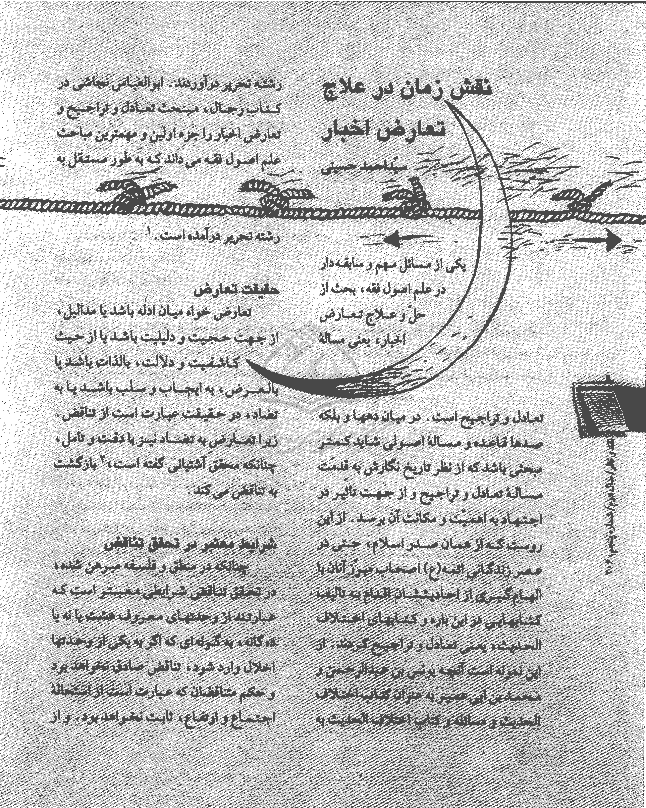 نقش زمان در علاج
تعارض اخبار
سیّداحمد حسینی
یکی از مسائل مهم و سابقه‌دار
در علم اصول فقه، بحث از
حلّ و علاج تعارض
اخبار، یعنی مسألهٔ
تعادل و تراجیح است. در میان دهها و بلکه
صدها قاعده و مسألهٔ اصولی شاید کمتر
مبحثی باشد که از نظر تاریخ نگارش به قدمت
مسألهٔ تعادل و تراجیح و از جهت تأثیر در
اجتهاد به اهمیّت و مکانت آن برسد. از این
روست که از همان صدر اسلام، حتی در
عصر زندگانی ائمه(ع) اصحاب مبرّز آنان با
الهام‌گیری از احادیثشان اقدام به تألیف
کتابهایی در این باره و کتابهای اختلاف
الحدیث، یعنی تعادل و تراجیح کردند. از
این نمونه است آنچه یونس بن عبدالرحمن و
محمدبن ابی عمیر به عنوان کتاب اختلاف
الحدیث و مسائله و کتاب اختلاف الحدیث به
رشته تحریر درآوردند. ابوالعباس نجاشی در
کتاب رجال، مبحث تعادل و تراجیح و
تعارض اخبار را جزء اولین و مهمترین مباحث
علم اصول فقه می‌داند که به طور مستقل به
رشته تحریر درآمده است.۱
حقیقت تعارض
تعارض خواه میان ادلّه باشد یا مدالیل،
از جهت حجیت و دلیلیت باشد یا از حیث
کاشفیت و دلالت، بالذات باشد یا
بالعرض، به ایجاب و سلب باشد یا به
تضاد، در حقیقت عبارت است از تناقض.
زیرا تعارض به تضاد نیز با دقت و تأمل،
چنانکه محقق آشتیانی گفته است،۲ بازگشت
به تناقض می‌کند.
شرایط معتبر در تحقق تناقض
چنانکه در منطق و فلسفه مبرهن شده،
در تحقق تناقض شرایطی معتبر است که
عبارتند از وحدتهای معروف هشت یا نه یا
ده‌گانه، به گونه‌ای که اگر به یکی از وحدتها
اخلال وارد شود، تناقض صادق نخواهد بود
و حکم متناقضان که عبارت است از استحالهٔ
اجتماع و ارتفاع، ثابت نخواهد بود. و از